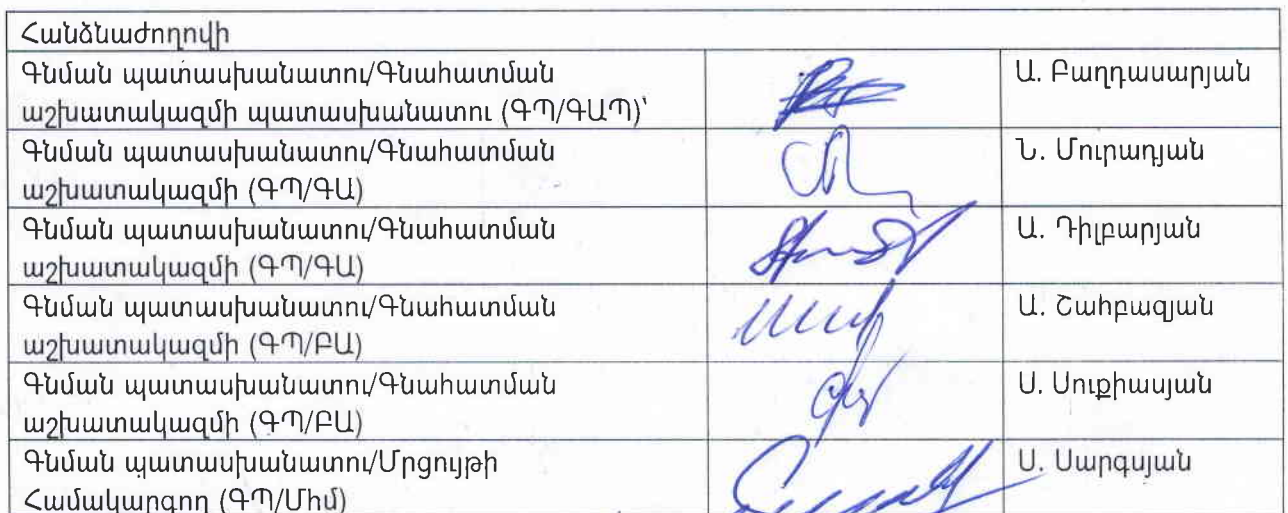 Հանձնաժողովի
Գնման պատասխանատու/Գնահատման
աշխատակազմի պատասխանատու (ԳՊ/ԳԱՊ)՝
Ա. Բաղդասարյան
Գնման պատասխանատու/Գնահատման
աշխատակազմի (ԳՊ/ԳԱ)
Ն. Մուրադյան
Գնման պատասխանատու/Գնահատման
աշխատակազմի (ԳՊ/ԳԱ)
Ա. Դիլբարյան
Գնման պատասխանատու/Գնահատման
աշխատակազմի (ԳՊ/ԲԱ)
Ա. Շահբազյան
Գնման պատասխանատու/Գնահատման
աշխատակազմի (ԳՊ/ԲԱ)
Ս. Սուքիասյան
Գնման պատասխանատու/Մրցույթի
Համակարգող (ԳՊ/Միմ)
Ս. Սարգսյան